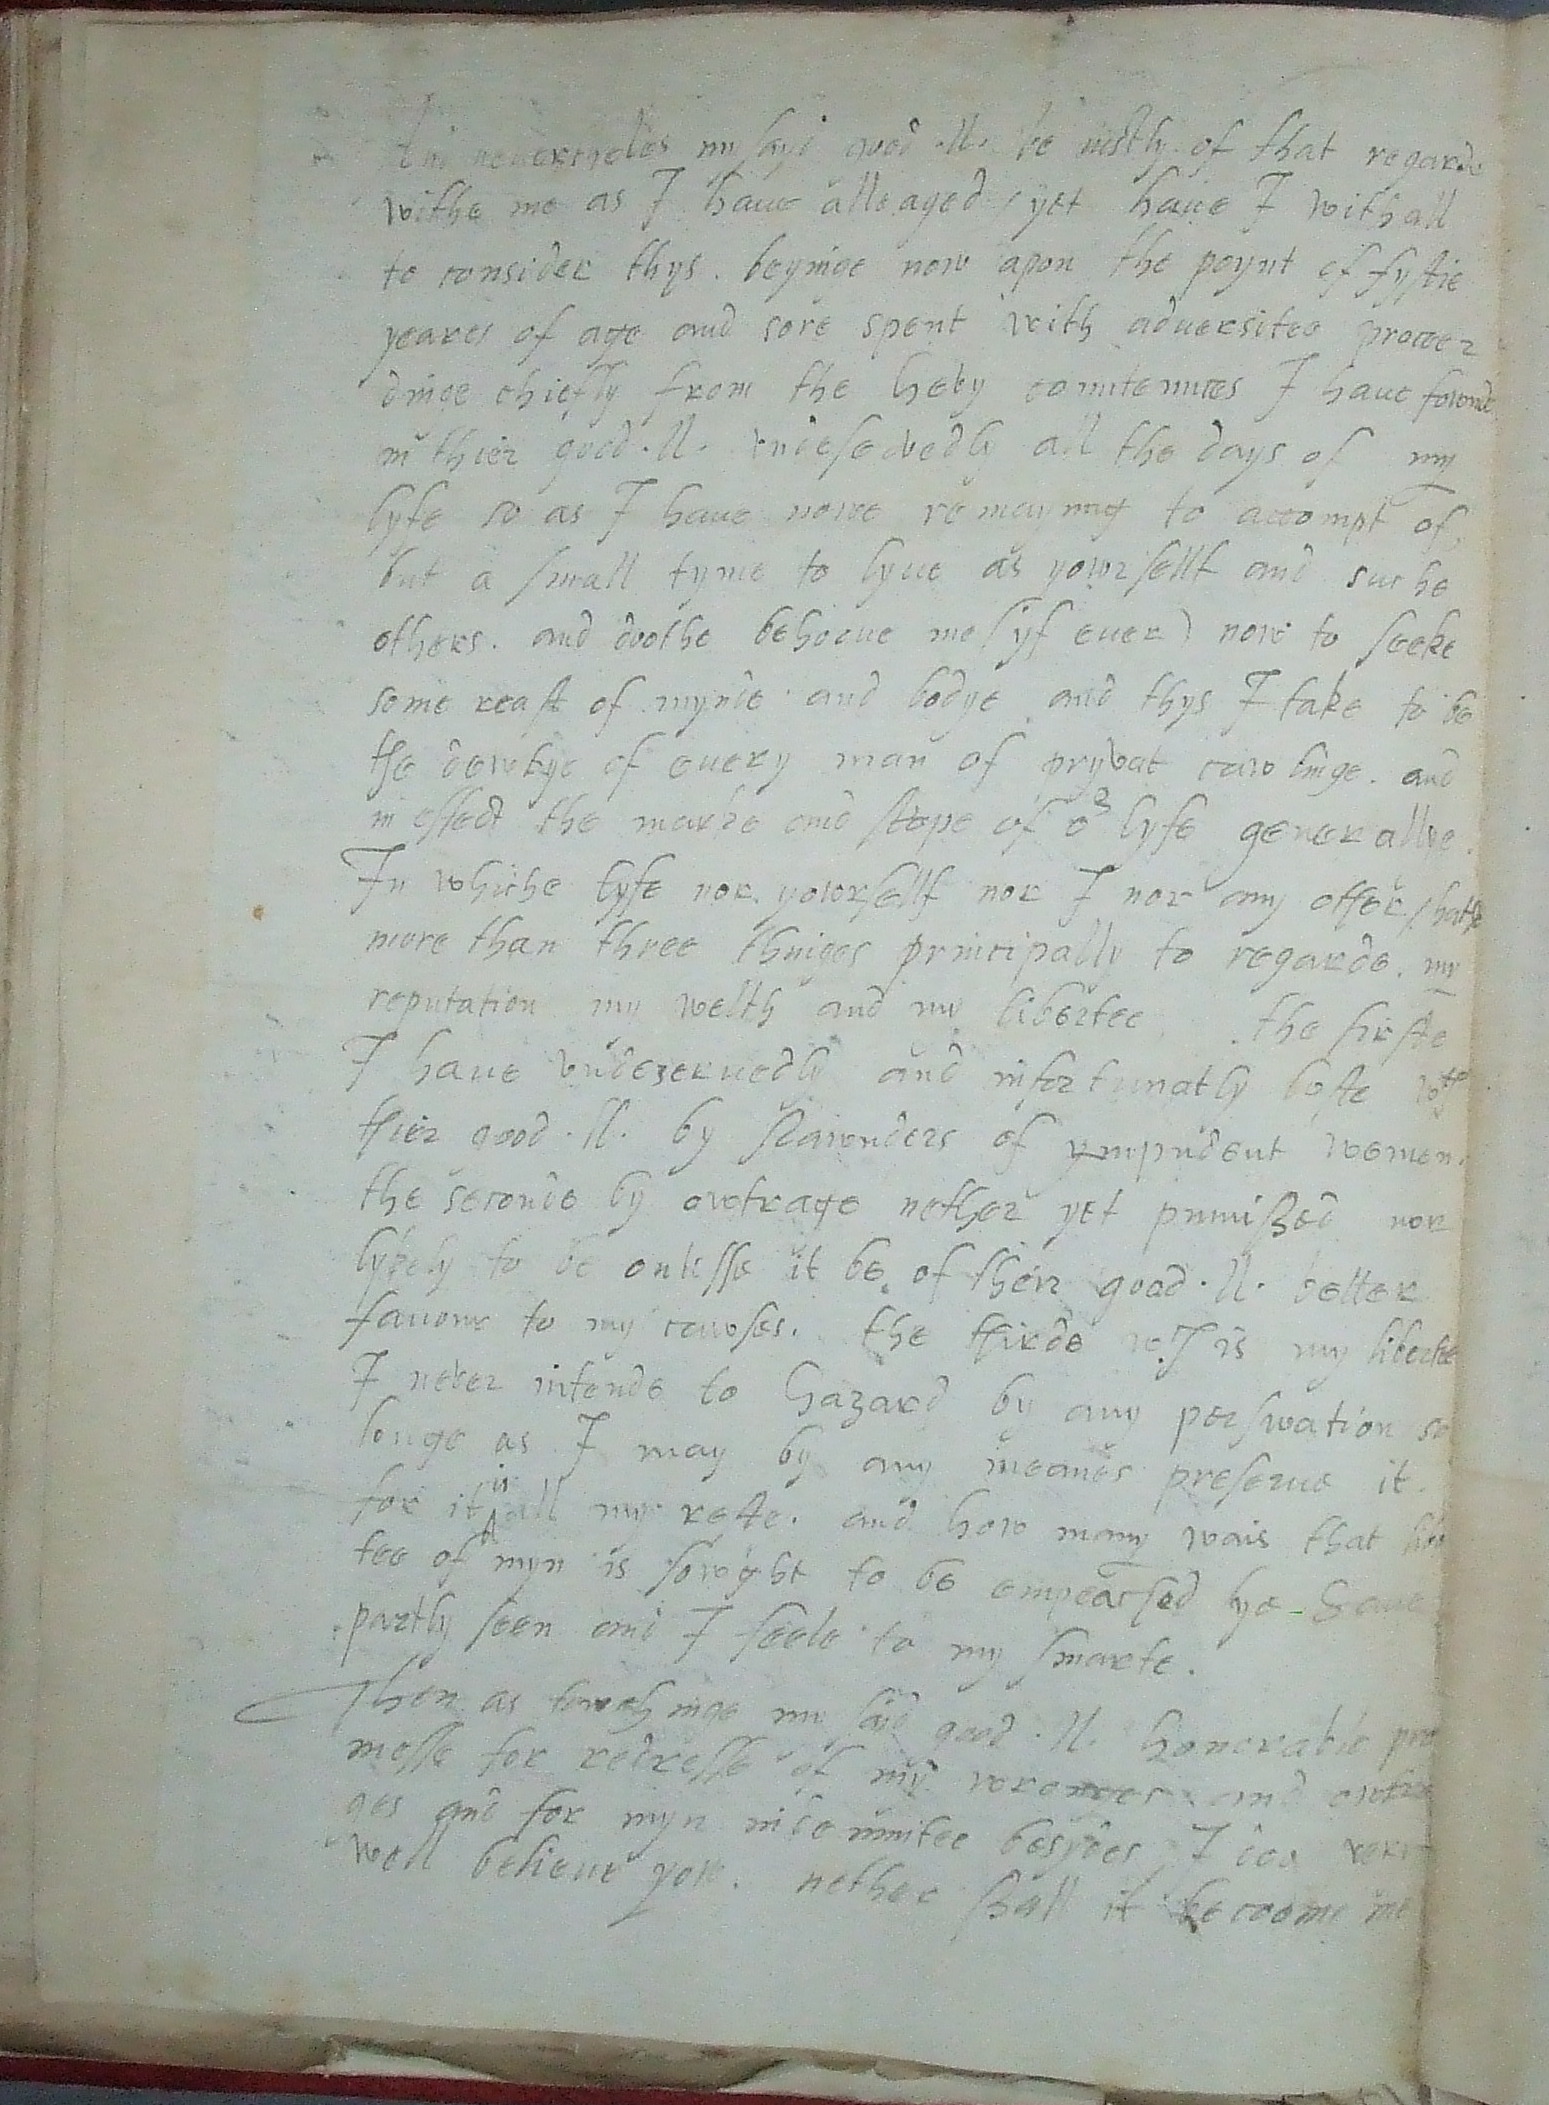 And nevertheles my sayd good .ll. be iustly of that regarde
withe me as I haue alleaged / yet haue I withall
to consider thys . beyinge now apon the poynt of fyftie
yeares of age and sore spent with aduersitee procee
dinge chiefly from the hevy countenances I haue fownde
in thier good .ll. vndeservedly all the days of my
lyfe so as I haue nowe remayning to accompt of,
but a small tyme to lyue as yowrsellf and suche
others . and dothe behooue me (yf euer) now to seeke
some reast of mynde and bodye and thys I take to be
the dewtye of euery man of pryvat cawlinge . and
in effect the marke and skope of or lyfe generallye .
In whiche lyfe nor yowrsellf nor I nor any other / hathe
more than three thinges principally to regarde . my
reputation my welth and my libertee . the firste
I haue vndezeruedly and infortunatly loste wth
thier good .ll. by slawnders of ympudent wemen .
the seconde by owtrage nether yet punished nor
lykely to be onlesse it be of their good .ll. better
favour to my cawses . the thirde wch is my libertee
I never intende to hazard by any perswation so
longe as I may by any meanes preserue it .
for it is all my reste . and how many wais that liber
tee of myn is sowght to be empeached ye haue
partly seen and I feele to my smarte .
Then as towchinge my said good .ll. honorable pro
messe for redresse of my wronges and owtra
ges and for myn indemnitee besydes, I doo very
well belieue yow . nether shall it becoome me